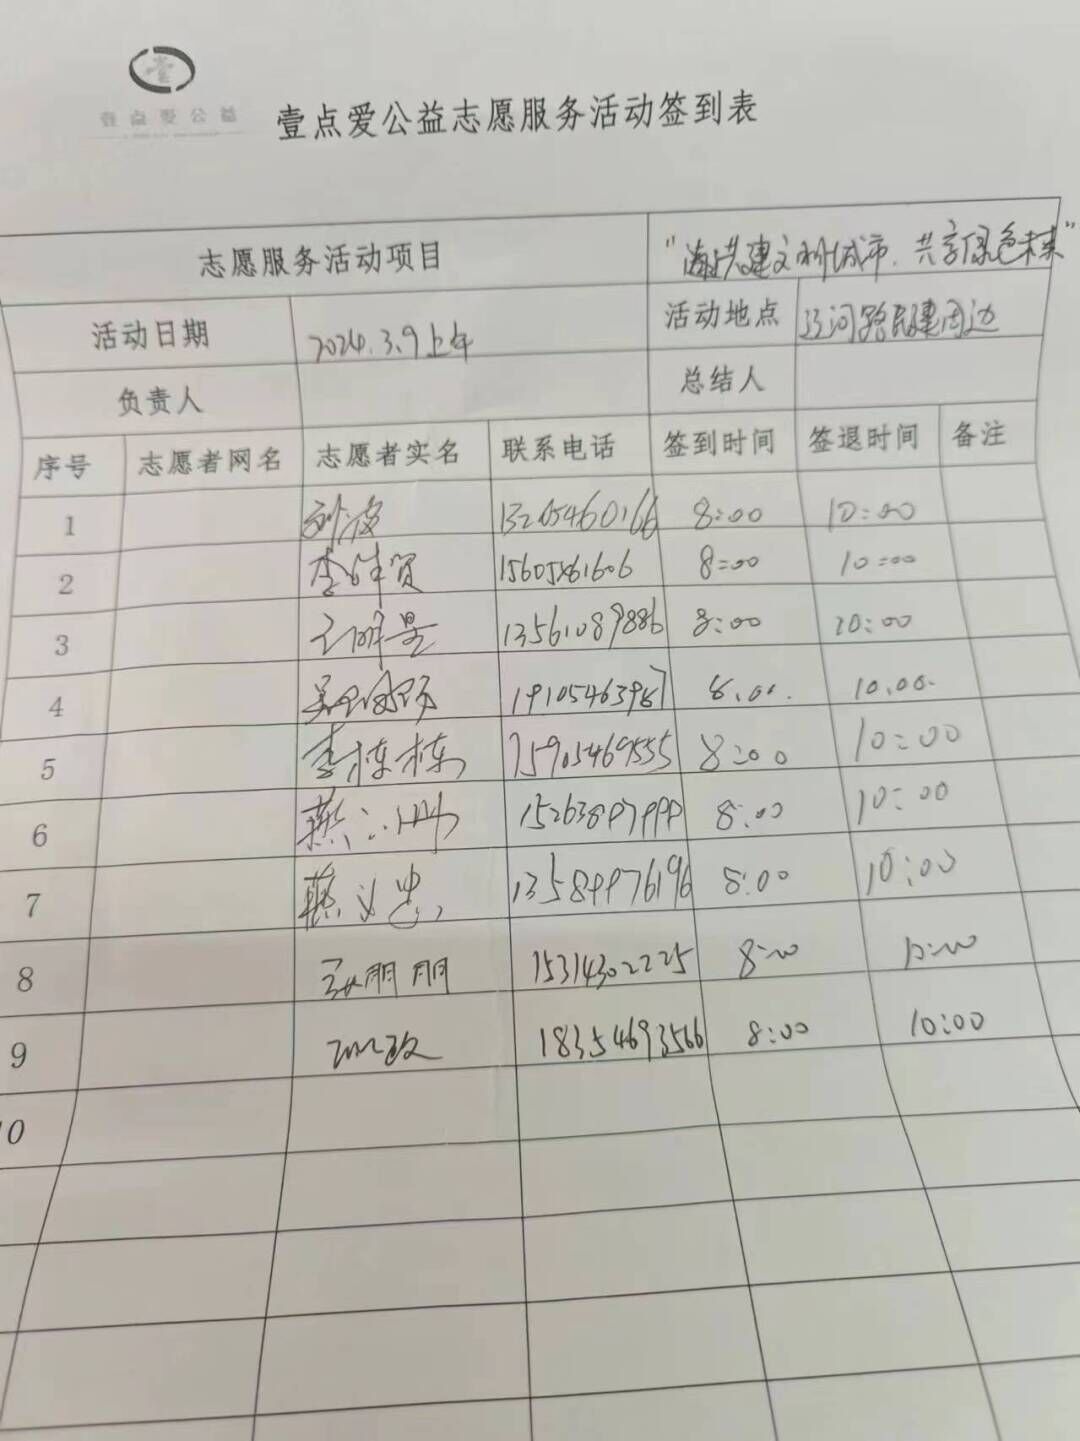 壹点爱公益
壹点爱公益志愿服务活动签到表
志愿服务活动项目 共建文明城市、共享绿色未来"
活动日期 2024.3.9上午 活动地点 辽河路民建周边
负责人 总结人
序号 志愿者网名 志愿者实名 联系电话 签到时间 签退时间 备注
1 刘波 13205460166 8:00 10:00
2 8:00 10:00
3 13561089886 8:00 10:00
4 19105463967 8.00. 10.00.
5 李栋栋 15905469555 8:00 10:00
6 8:00 10:00
7 燕义忠 8:00 10:00
8 朋朋 15314302225 8:00 10:00
9 18354693566 8:00 10:00
10